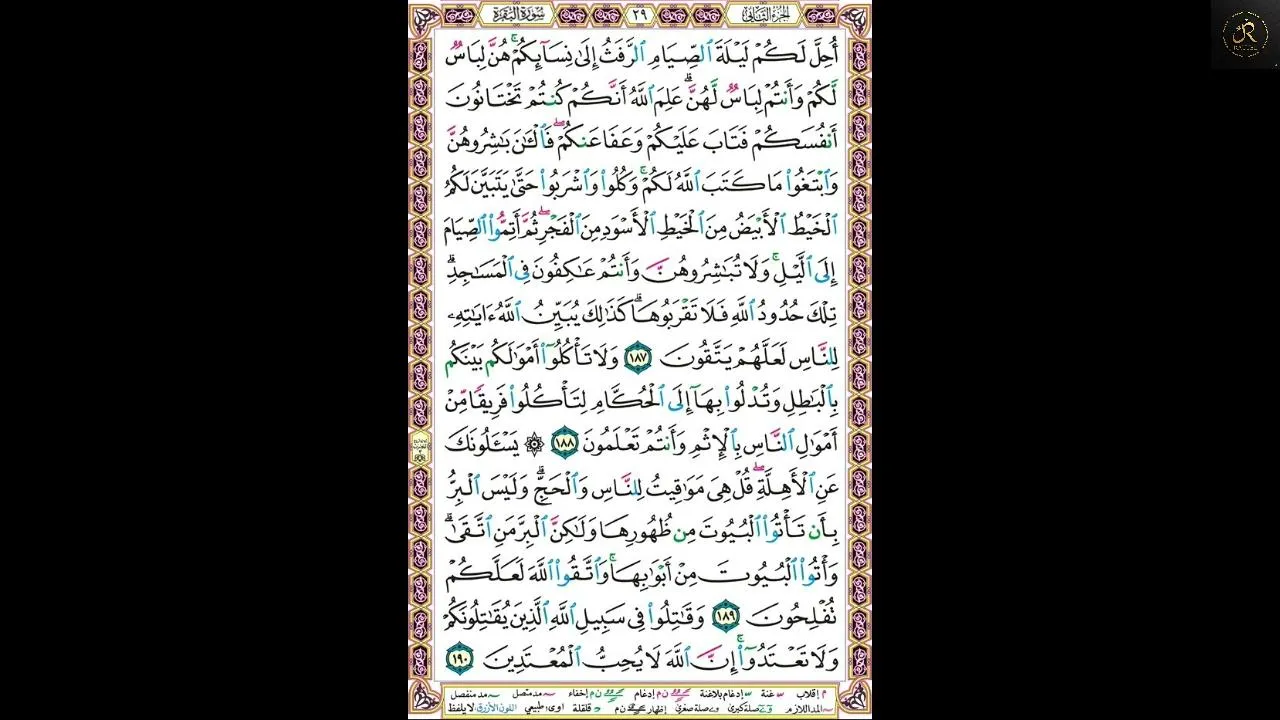 سُورَةُ البَقَرَةِ ٢٩ الجُزءُ الثَّانِي
أُحِلَّ لَكُمْ لَيْلَةَ ٱلصِّيَامِ ٱلرَّفَثُ إِلَىٰ نِسَآئِكُمْۚ هُنَّ لِبَاسٌ
لَّكُمْ وَأَنتُمْ لِبَاسٌ لَّهُنَّۗ عَلِمَ ٱللَّهُ أَنَّكُمْ كُنتُمْ تَخْتَانُونَ
أَنفُسَكُمْ فَتَابَ عَلَيْكُمْ وَعَفَا عَنكُمْۖ فَٱلْـَٰٔنَ بَـٰشِرُوهُنَّ
وَٱبْتَغُوا۟ مَا كَتَبَ ٱللَّهُ لَكُمْۚ وَكُلُوا۟ وَٱشْرَبُوا۟ حَتَّىٰ يَتَبَيَّنَ لَكُمُ
ٱلْخَيْطُ ٱلْأَبْيَضُ مِنَ ٱلْخَيْطِ ٱلْأَسْوَدِ مِنَ ٱلْفَجْرِۖ ثُمَّ أَتِمُّوا۟ ٱلصِّيَامَ
إِلَى ٱلَّيْلِۚ وَلَا تُبَـٰشِرُوهُنَّ وَأَنتُمْ عَـٰكِفُونَ فِى ٱلْمَسَـٰجِدِۗ
تِلْكَ حُدُودُ ٱللَّهِ فَلَا تَقْرَبُوهَاۗ كَذَٰلِكَ يُبَيِّنُ ٱللَّهُ ءَايَـٰتِهِۦ
لِلنَّاسِ لَعَلَّهُمْ يَتَّقُونَ ١٨٧ وَلَا تَأْكُلُوٓا۟ أَمْوَٰلَكُم بَيْنَكُم
بِٱلْبَـٰطِلِ وَتُدْلُوا۟ بِهَآ إِلَى ٱلْحُكَّامِ لِتَأْكُلُوا۟ فَرِيقًا مِّنْ
أَمْوَٰلِ ٱلنَّاسِ بِٱلْإِثْمِ وَأَنتُمْ تَعْلَمُونَ ١٨٨ ۞ يَسْـَٔلُونَكَ
عَنِ ٱلْأَهِلَّةِۖ قُلْ هِىَ مَوَٰقِيتُ لِلنَّاسِ وَٱلْحَجِّۗ وَلَيْسَ ٱلْبِرُّ
بِأَن تَأْتُوا۟ ٱلْبُيُوتَ مِن ظُهُورِهَا وَلَـٰكِنَّ ٱلْبِرَّ مَنِ ٱتَّقَىٰۗ
وَأْتُوا۟ ٱلْبُيُوتَ مِنْ أَبْوَٰبِهَاۚ وَٱتَّقُوا۟ ٱللَّهَ لَعَلَّكُمْ
تُفْلِحُونَ ١٨٩ وَقَـٰتِلُوا۟ فِى سَبِيلِ ٱللَّهِ ٱلَّذِينَ يُقَـٰتِلُونَكُمْ
وَلَا تَعْتَدُوٓا۟ۚ إِنَّ ٱللَّهَ لَا يُحِبُّ ٱلْمُعْتَدِينَ ١٩٠
م إقلاب غنة إدغام بلاغنة ن م إدغام ن م إخفاء مد متصل مد منفصل
المد اللازم صلة كبرى صلة صغرى إظهار ن م قلقلة اوى: طبيعي اللون الأزرق: لا يلفظ